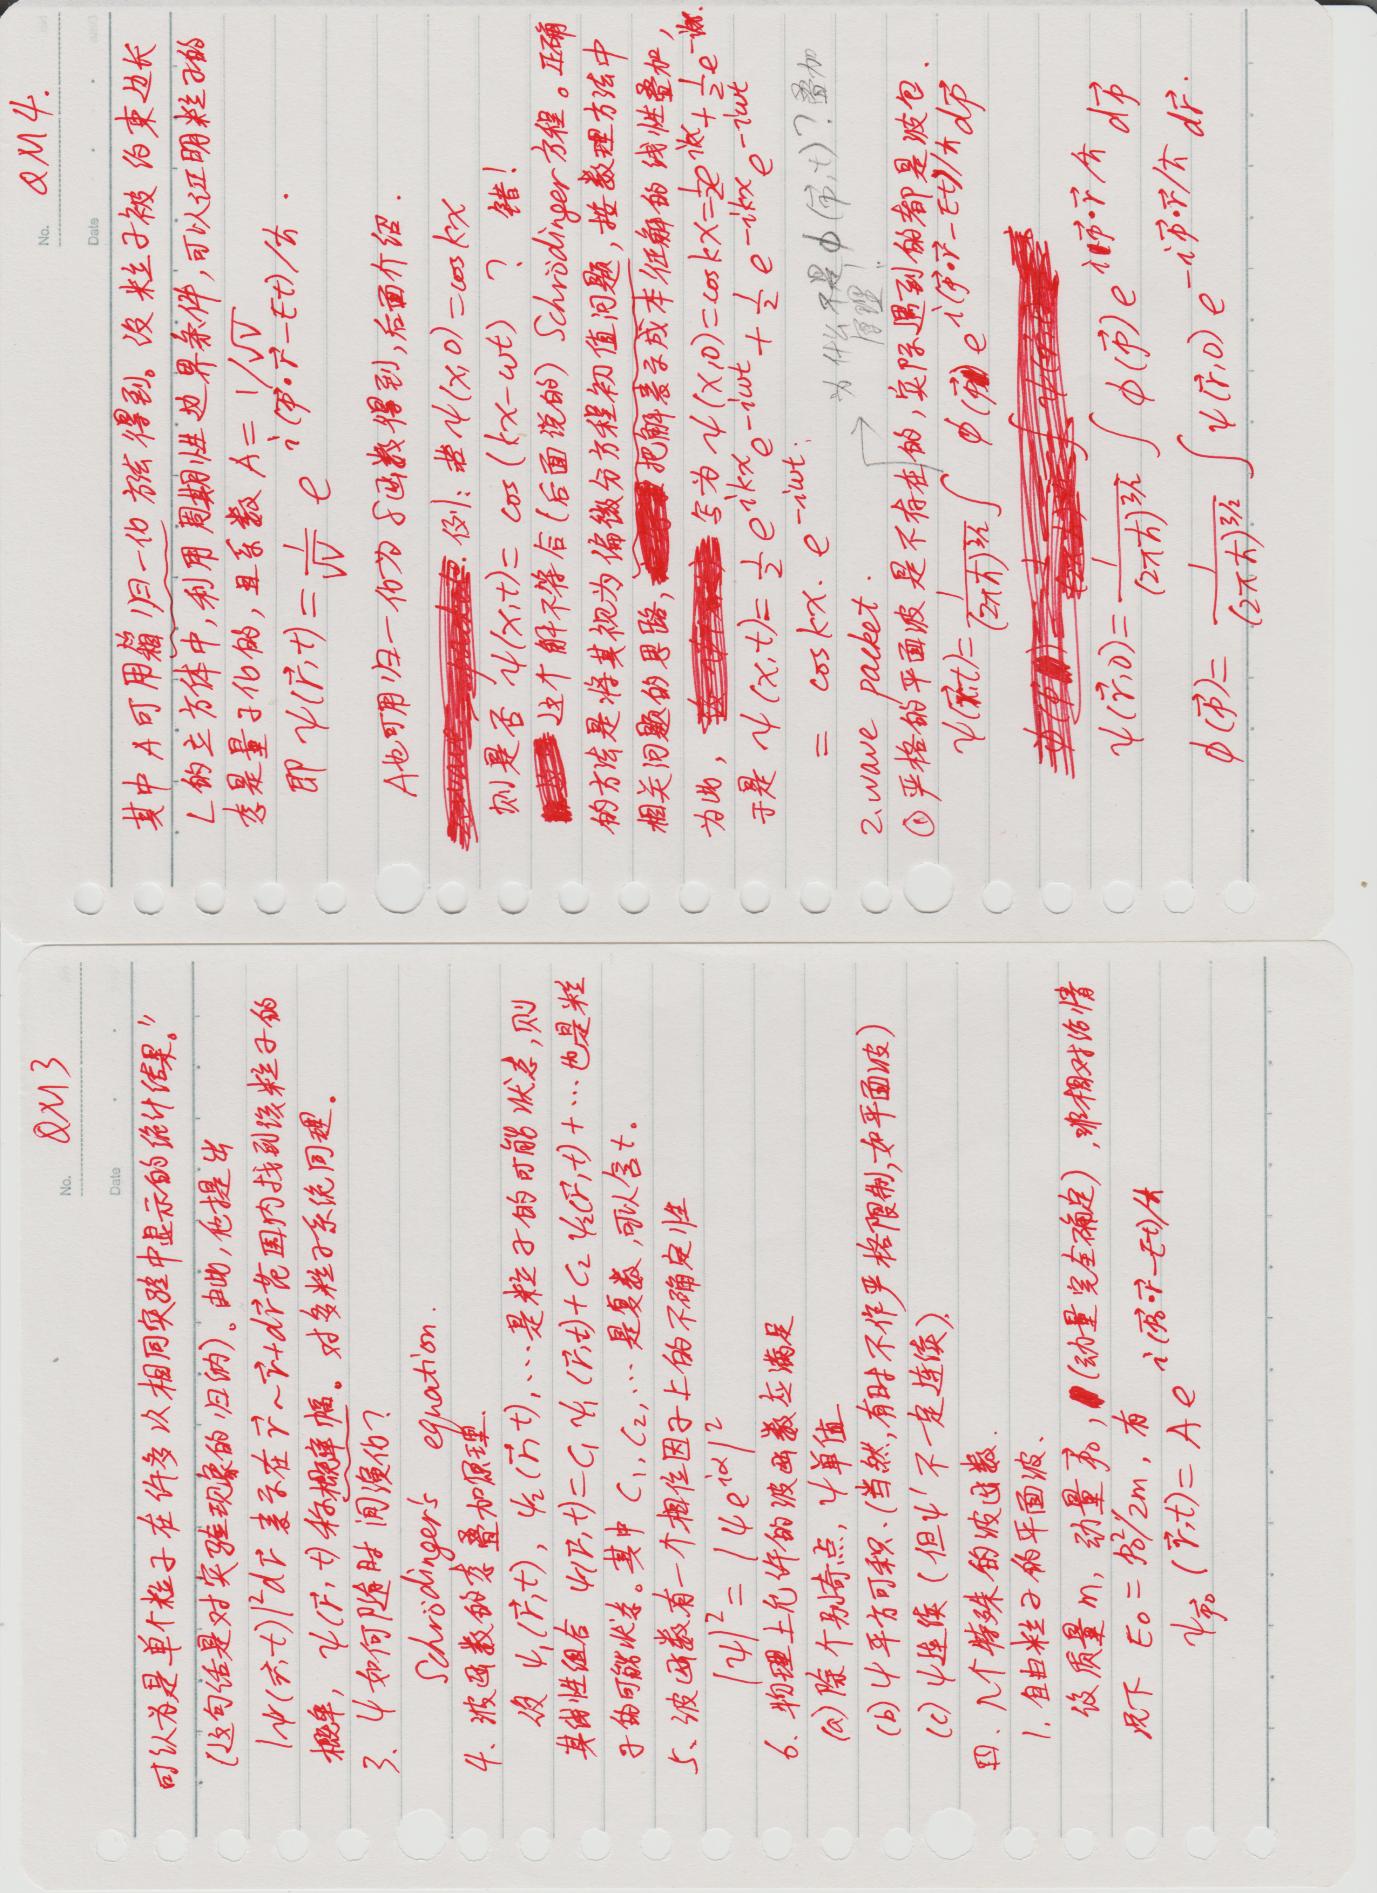 No. QM3
Date
可认为是单个粒子在许多次相同实验中显示的统计结果。"
(这句话是对实验现象的归纳)。由此,他提出
|ψ(r⃗,t)|²dr⃗ 表示在 r⃗~r⃗+dr⃗ 范围内找到该粒子的
概率, ψ(r⃗,t) 称概率幅。对多粒子系统同理。
3、ψ如何随时间演化?
Schrödinger's equation.
4、波函数的态叠加原理.
设 ψ₁(r⃗,t), ψ₂(r⃗,t), …是粒子的可能状态,则
其线性组合 ψ(r⃗,t)=C₁ψ₁(r⃗,t)+C₂ψ₂(r⃗,t)+…也是粒
子的可能状态。其中 C₁,C₂,…是复数,可以含t。
5、波函数有一个相位因子上的不确定性
|ψ|²=|ψe^{iα}|²
6、物理上允许的波函数应满足
(a)除个别奇点,ψ单值
(b)ψ平方可积.(当然,有时不作严格限制,如平面波)
(c)ψ连续(但ψ'不一定连续).
四、几个特殊的波函数.
1.自由粒子的平面波.
设质量m,动量p⃗₀,(动量完全确定),非相对论情
况下 E₀=p₀²/2m, 有
ψ_{p⃗₀}(r⃗,t)=Ae^{i(p⃗₀·r⃗-Et)/ħ}
No. QM4.
Date
其中A可用箱归一化方法得到。设粒子被约束边长
L的立方体中,利用周期性边界条件,可以证明粒子的
态是量子化的,且系数 A=1/√V
即 ψ(r⃗,t)=1/√V e^{i(p⃗·r⃗-Et)/ħ}.
A也可用归一化为δ函数得到,后面介绍.
例:若ψ(x,0)=coskx
则是否ψ(x,t)=cos(kx-ωt) ? 错!
这个解不符合(后面说的)Schrödinger方程。正确
的方法是将其视为偏微分方程初值问题,按数理方法中
相关问题的思路,把解表示成本征解的线性叠加,
为此, 写为ψ(x,0)=coskx=½e^{ikx}+½e^{-ikx}.
于是 ψ(x,t)=½e^{ikx}e^{-iωt}+½e^{-ikx}e^{-iωt}
=coskx·e^{-iωt};
为什么不是φ(p⃗,t)?叠加
原理!
2.wave packet.
①严格的平面波是不存在的,实际遇到的都是波包.
ψ(r⃗,t)=1/(2πħ)^{3/2}∫φ(p⃗)e^{i(p⃗·r⃗-Et)/ħ}dp⃗
ψ(r⃗,0)=1/(2πħ)^{3/2}∫φ(p⃗)e^{ip⃗·r⃗/ħ}dp⃗
φ(p⃗)=1/(2πħ)^{3/2}∫ψ(r⃗,0)e^{-ip⃗·r⃗/ħ}dr⃗.